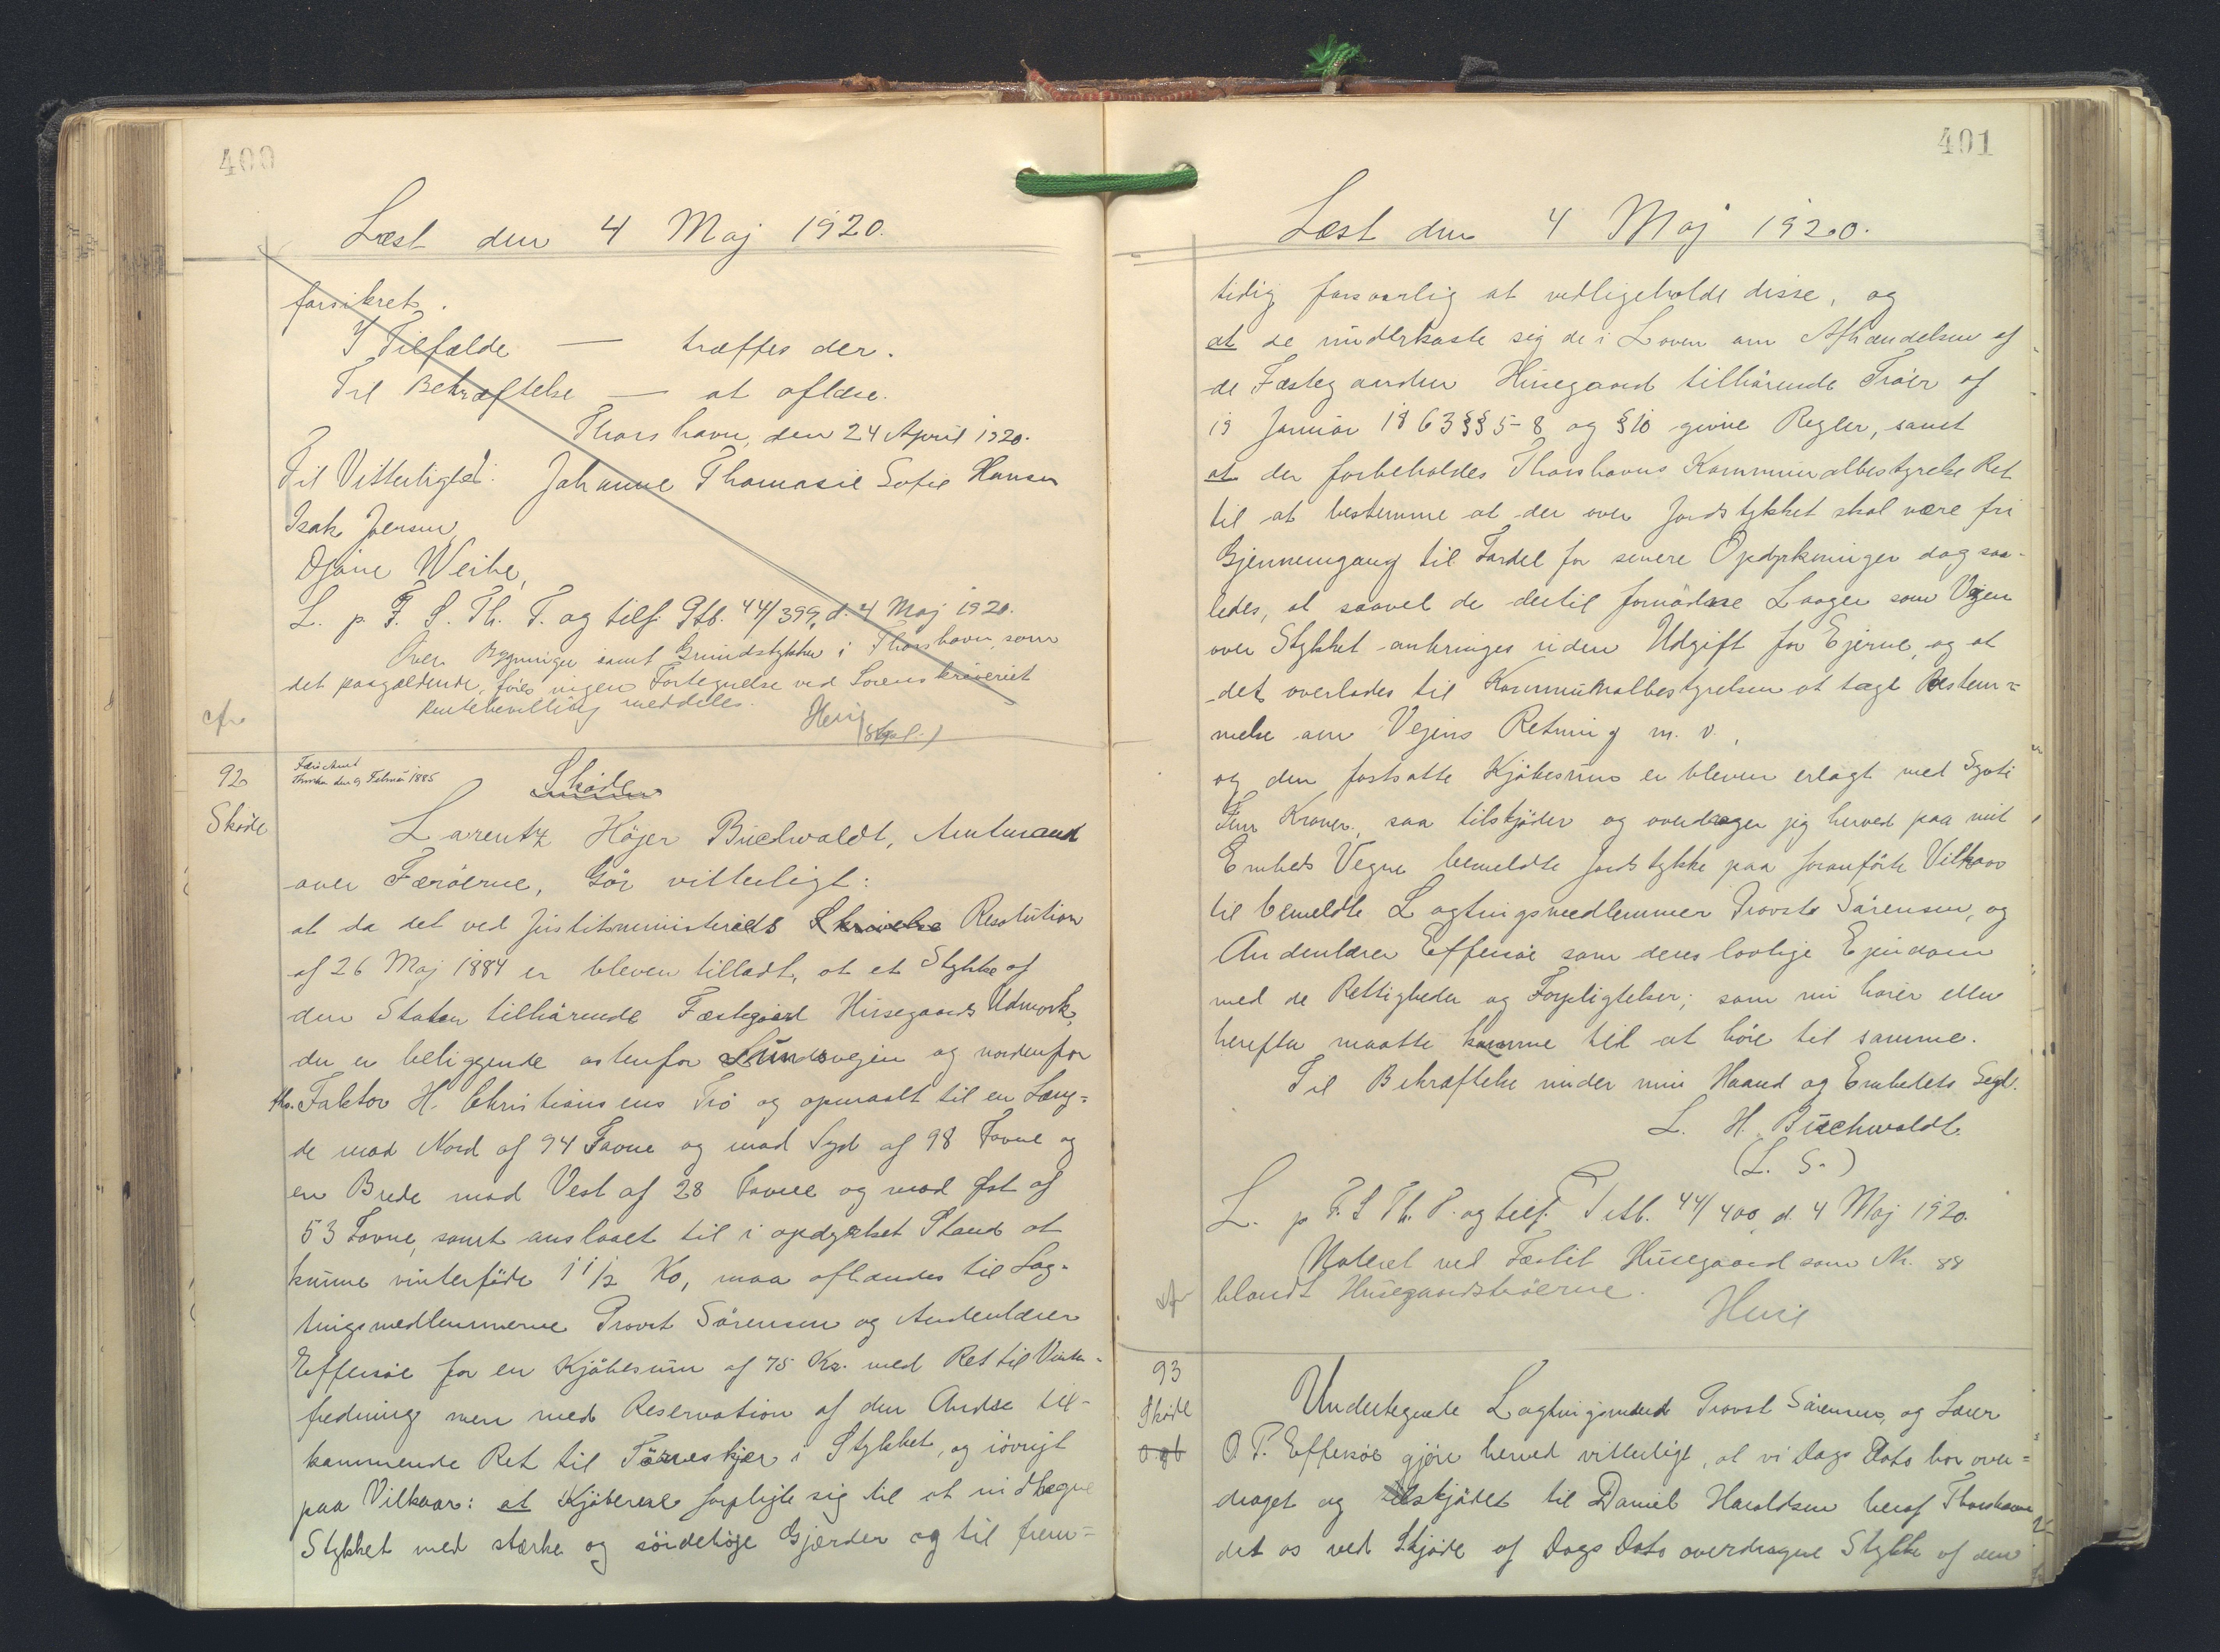 400
Læst den 4 Maj 1920.
forsikret.
I Tilfælde — træffes der.
Til Bekræftelse — at aflæse.
Thorshavn, den 24 April 1920.
Til Vitterlighed: Johanne Thomasie Sofie Hansen
Isak Joensen,
Djóne Weihe,
L. p. F. S. Th. T. og tilf. Ptb. 44/399, d. 4 Maj 1920.
Over Bygninger samt Grundstykker i Thorshavn, som
det paagældende, føres ingen Fortegnelse ved Sorenskriveriet
Rentebevilling meddeles.
cfr
92
Skøde
Færø Amt
Thorshavn den 9 Februar 1885
Skøde
Larentz Höjer Buchwaldt, Amtmand
over Færöerne, Gör vitterligt:
at da det ved Justitsministeriets Skrivelse Resolution
af 26 Maj 1884 er bleven tilladt, at et Stykke af
den Staten tilhørende Fæstegaard Husegaards Udmark,
der er beliggende østenfor Sundsvejen og nordenfor
Faktor H. Christiansens Trö og opmaalt til en Læng=
de mod Nord af 94 Favne og mod Syd af 98 Favne og
en Brede mod Vest af 28 Favne og mod Øst af
53 Favne, samt anslaaet til i opdyrket Stand at
kunne vinterføde 1 1/2 Ko, maa afhændes til Lag-
tingsmedlemmerne Provst Sörensen og Andenlærer
Effersöe for en Kjöbesum af 75 Kr. med Ret til Vinter-
fredning men med Reservation af den Andre til-
kommende Ret til Törveskjær i Stykket, og iövrigt
paa Vilkaar: at Kjöberne forpligte sig til at indhegne
Stykket med stærke og soidehöje Gjærder og til frem=
401
Læst den 4 Maj 1920.
tidig forsvarlig at vedligeholde disse, og
at de underkaste sig de i Loven om Afhændelsen af
de Fæstegaarden Husegaard tilhørende Tröer af
19 Januar 1863 §§ 5-8 og § 10 givne Regler, samt
at der forbeholdes Thorshavns Kommunalbestyrelse Ret
til at bestemme at der over Jordstykket skal være fri
Gjennemgang til Fordel for senere Opdyrkninger dog saa-
ledes, at saavel de dertil fornödne Laager som Vejen
over Stykket anbringes uden Udgift for Ejerne, og at
det overlades til Kommunalbestyrelsen at tage Bestem=
melse om Vejens Retning m. v.,
og den fastsatte Kjöbesum er bleven erlagt med Syvti
Fem Kroner, saa tilskjöder og overdrager jeg herved paa mit
Embeds Vegne bemeldte Jordstykke paa foranförte Vilkaar
til bemeldte Lagtingsmedlemmer Provst Sörensen, og
Andenlærer Effersöe som deres lovlige Ejendom
med de Rettigheder og Forpligtelser, som nu hører eller
herefter maatte komme til at höre til samme.
Til Bekræftelse under min Haand og Embedets Segl.
L. H. Buchwaldt.
(L. S.)
L. p. F. S. Th. T. og tilf. Ptb. 44/400, d. 4 Maj 1920.
Noteret ved Fæstet Husegaard som Nr. 88
blandt Husegaardströerne.
cfr
93
Skøde
Undertegnede Lagtingsmænd Provst Sörensen, og Lærer
O. P. Effersöe gjöre herved vitterligt, at vi Dags Dato har over=
draget og tilskjödet til Daniel Haraldsen heraf Thorshavn
det os ved Skjöde af Dags Dato overdragne Stykke af den